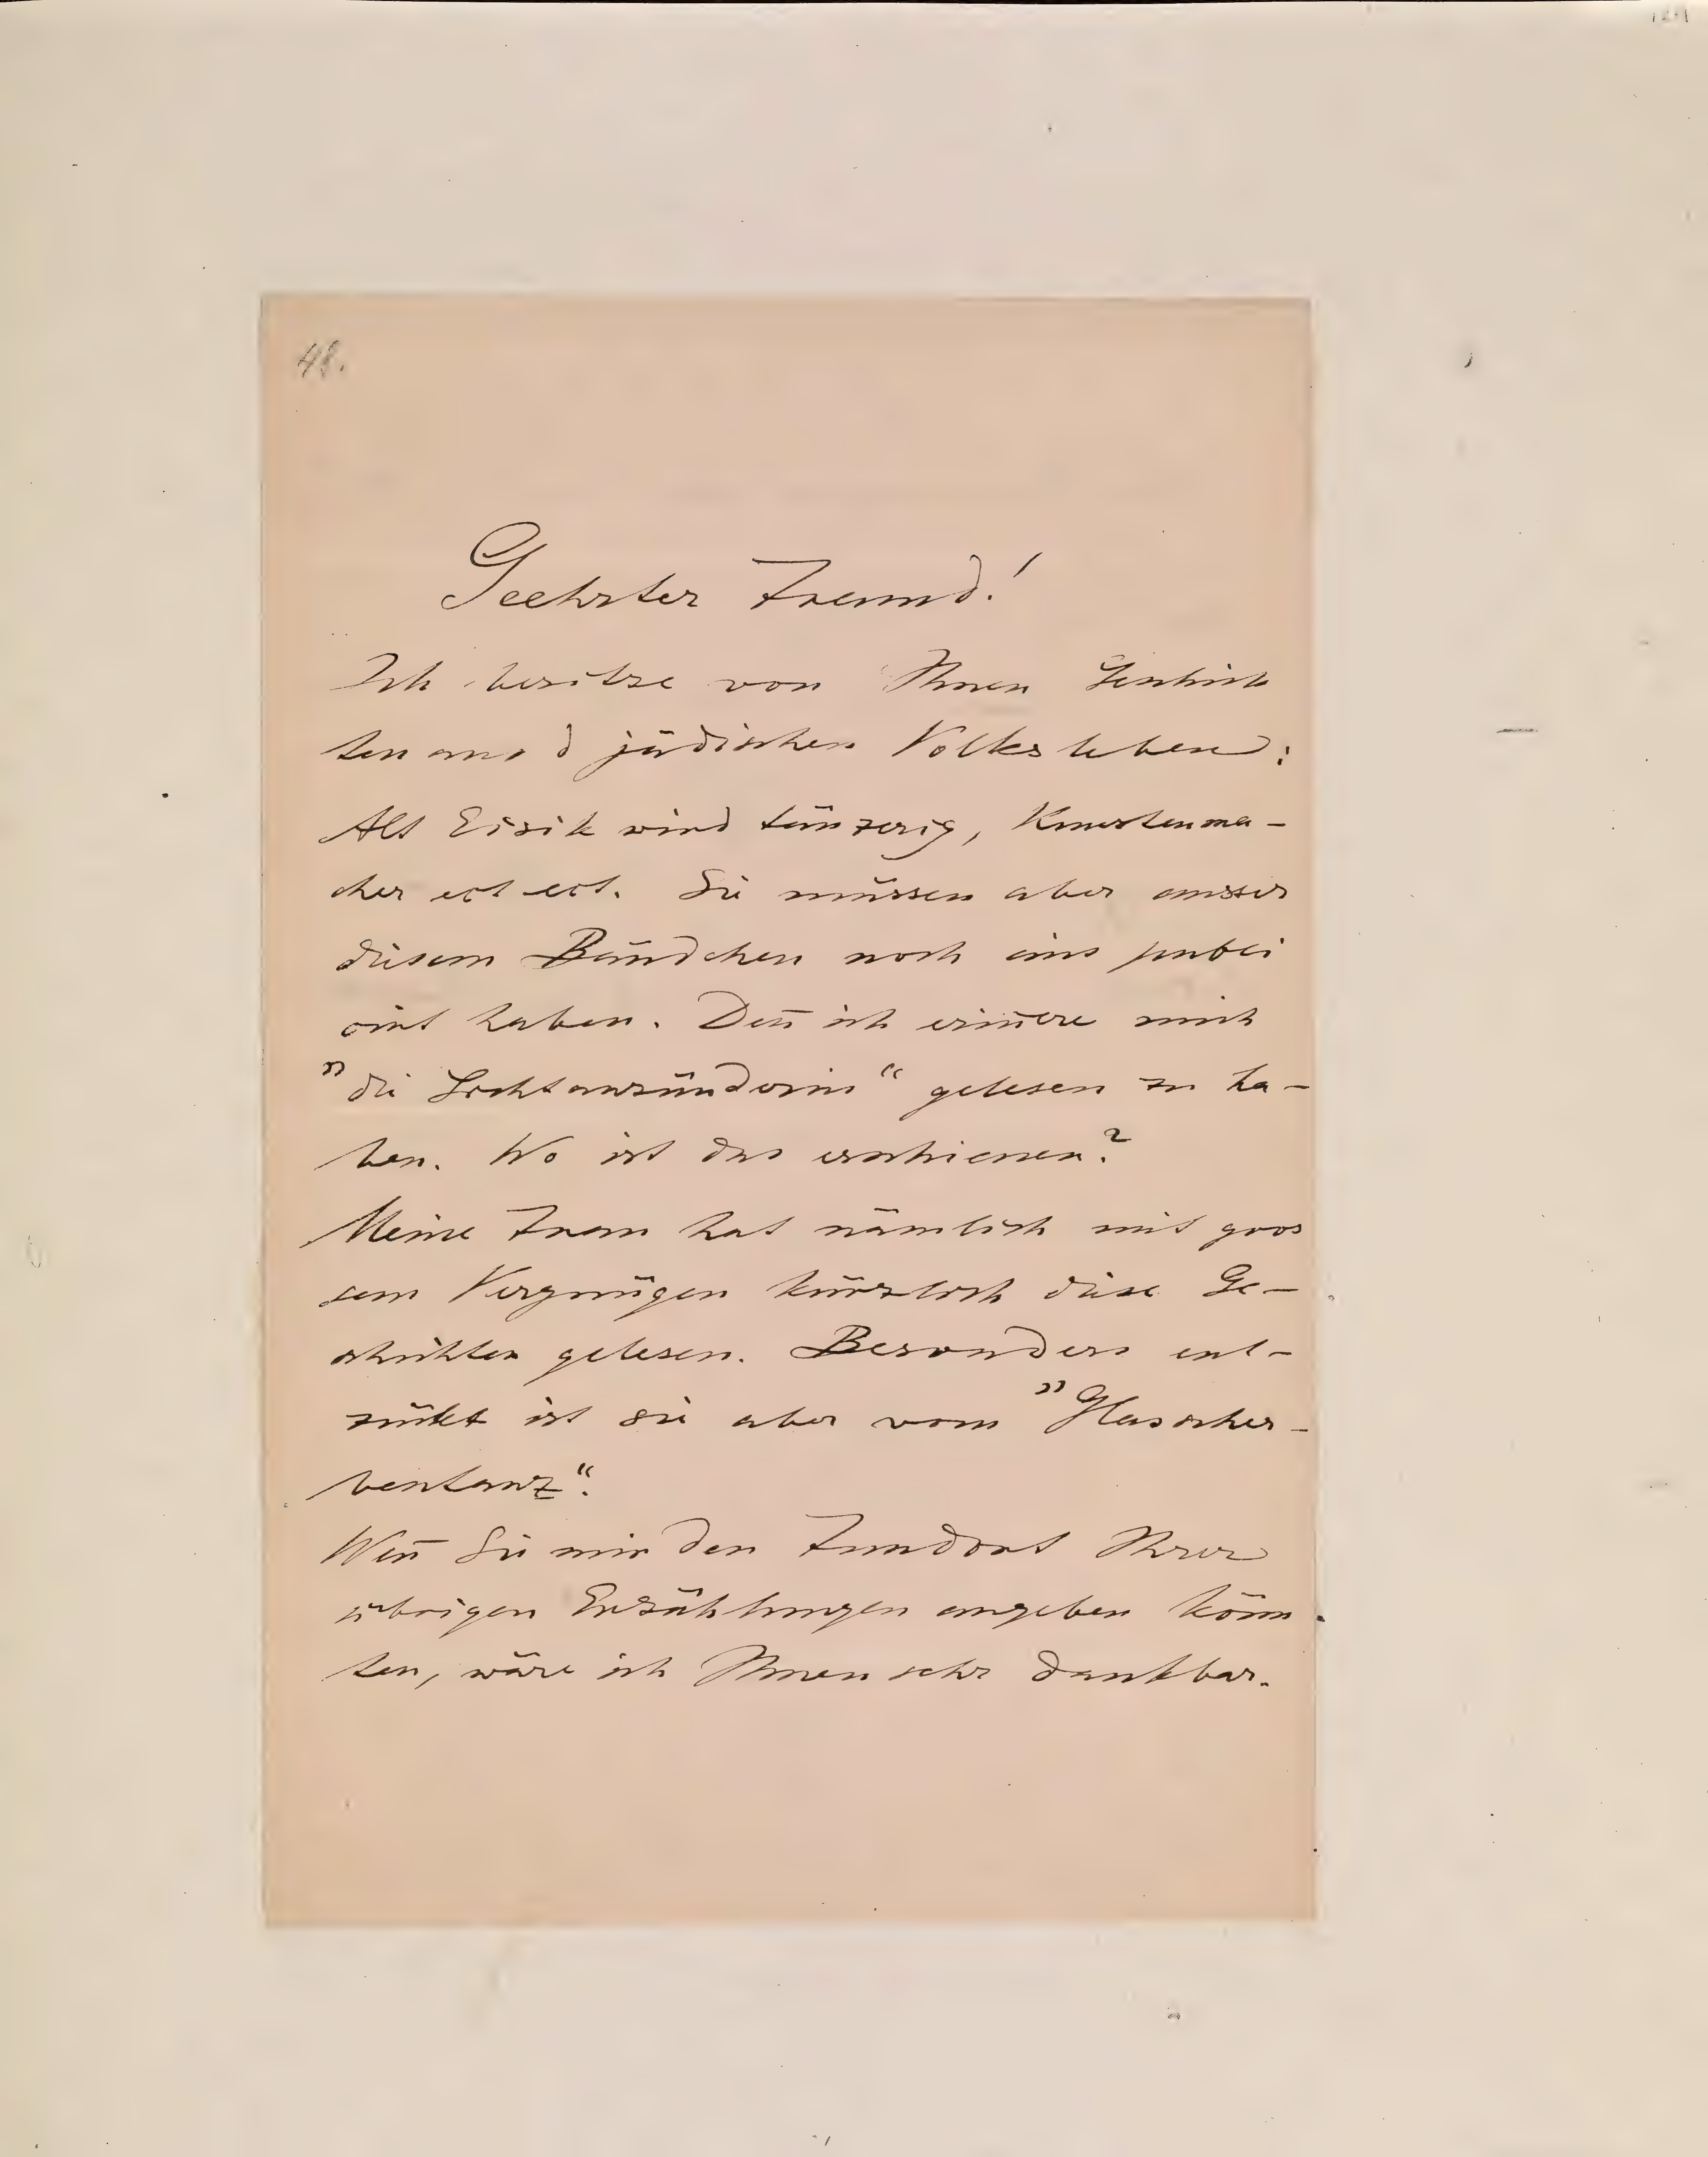 48.
Geehrter Freund!
Ich besitze von Ihnen Geschich
ten aus d jüdischen Volksleben:
Alt Eisik wird tänzerig, Knastenma-
cher ect ect. Sie müssen aber ausser
diesem Bändchen noch eins publi
cirt haben. Den̄ ich erin̄ere mich
"die Lichtanzünderin" gelesen zu ha-
ben. Wo ist das erschienen?
Meine Frau hat nämlich mit gros
sem Vergnügen kürzlich diese Ge-
schichten gelesen. Besonders ent-
zückt ist sie aber vom "Glasscher-
bentanz".
Wen̄ Sie mir den Fundort Ihrer
übrigen Erzählungen angeben könn
ten, wäre ich Ihnen sehr dankbar.